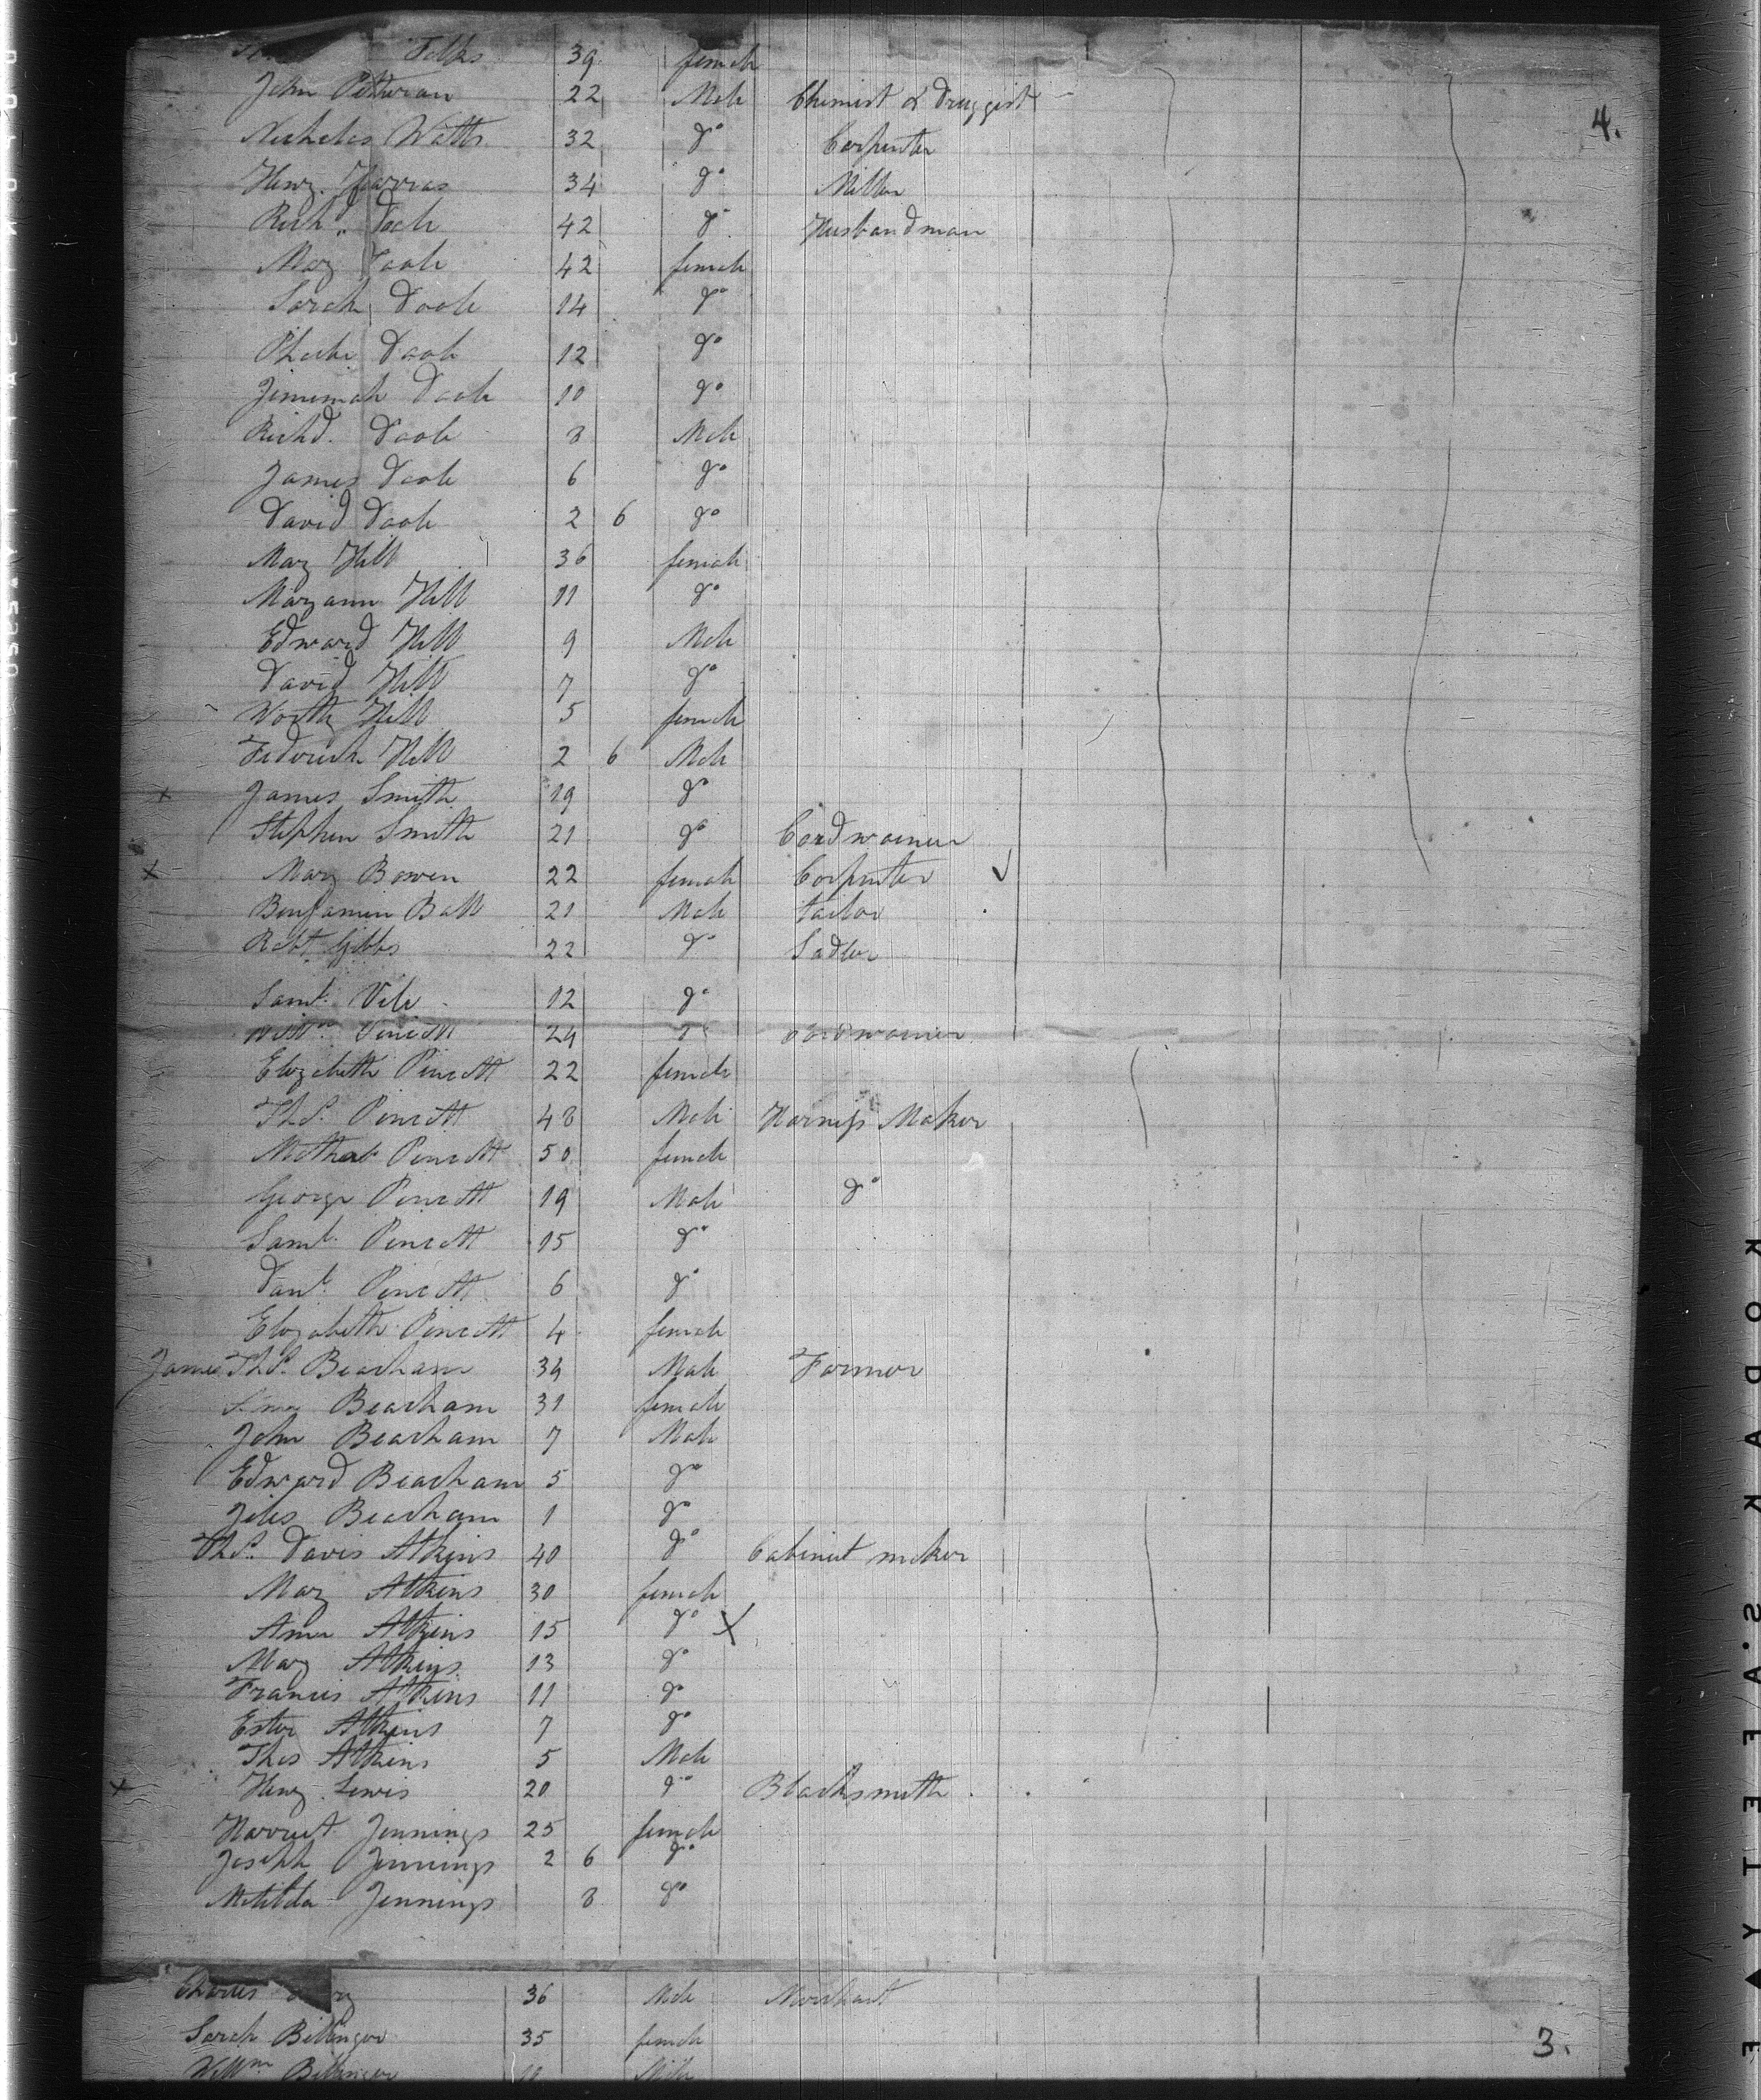 Folks 39 female
John Pitman 22 Male Chemist & Druggist
Nicholas Watts 32 do Carpenter
Heny. Harris 34 do Miller
Richd. Doole 42 do Husbandman
Mary Doole 42 female
Sarah Doole 14 do
Phebe Doole 12 do
Jemimah Doole 10 do
Richd. Doole 8 Male
James Doole 6 do
David Doole 2 6 do
Mary Hill 36 female
Maryann Hill 11 do
Edward Hill 9 Male
David Hill 7 do
Worthy Hill 5 female
Frederick Hill 2 6 Male
x James Smith 19 do
Stephen Smith 21 do Cordwainer
x Mary Bowen 22 female Carpenter
Benjamin Ball 21 Male tailor
Robt. Gibbs 22 do Sadler
Saml. Vile 12 do
Willm. Pincott 24 do Cordwainer
Elizabeth Pincott 22 female
Ths. Pincott 48 Male Harness Maker
Pincott 50 female
George Pincott 19 Male do
Saml. Pincott 15 do
Danl. Pincott 6 do
Elizabeth Pincott 4 female
James Ths. Beacham 34 Male Farmer
Beacham 31 female
John Beacham 7 Male
Edward Beacham 5 do
Jiles Beacham 1 do
Ths. Davis Atkins 40 do Cabinet maker
Mary Atkins 30 female
Ann Atkins 15 do X
Mary Atkins 13 do
Francis Atkins 11 do
Ester Atkins 7 do
Thos Atkins 5 Male
x Heny Lewis 20 do Blacksmith
Harriet Jennings 25 female
Joseph Jennings 2 6 do
Matilda Jennings 8 do
Charles 36 Male Merchant
Sarah Billinger 35 female
Willm Billinger 10 Male
4.
3.
KODAK S'AFETY ▲ E